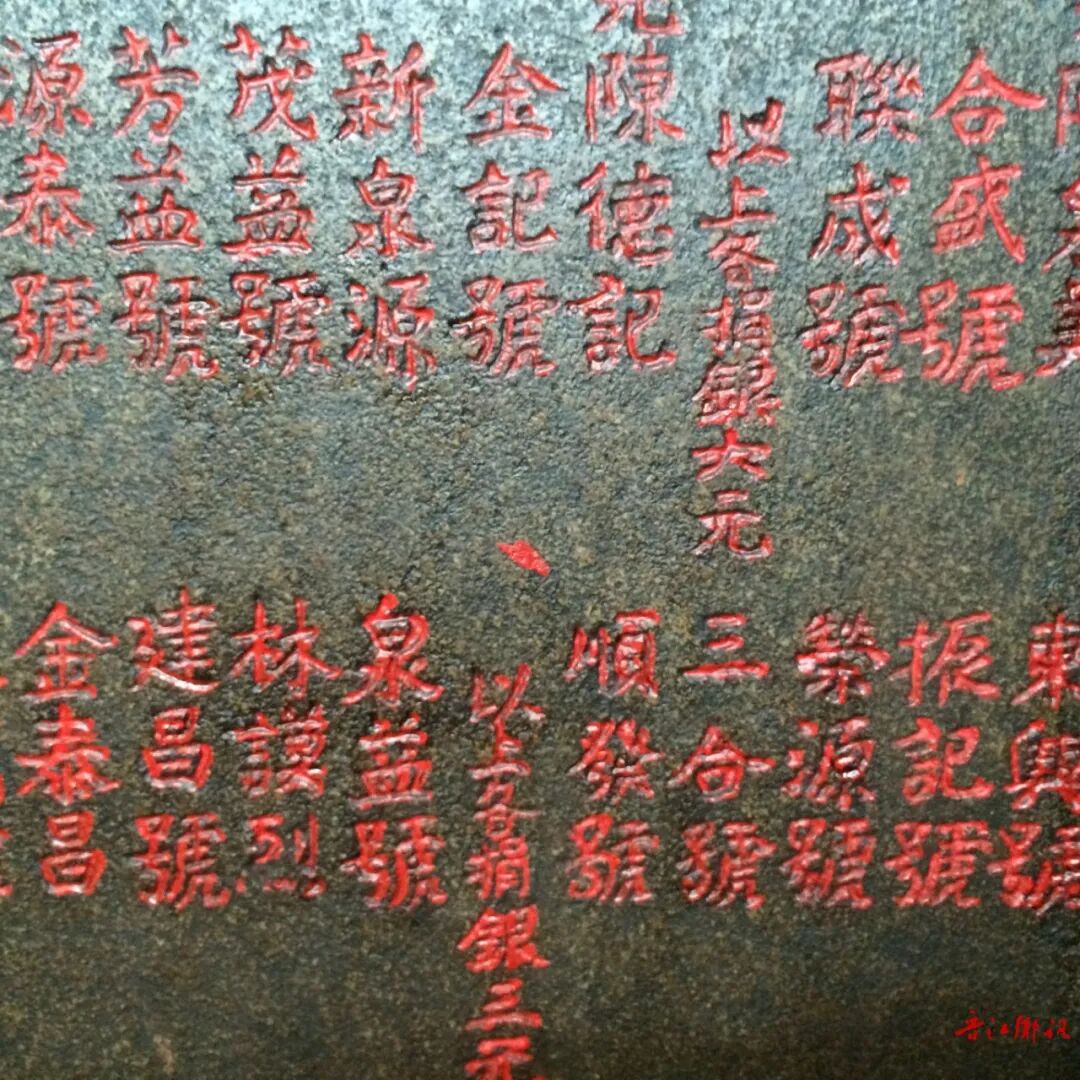 合盛號
聯成號
以上各捐銀六元
陳德記
金記號
新泉源
茂益號
芳益號
源泰號
東興號
振記號
榮源號
三合號
順發號
以上各捐銀三元
泉益號
林謨烈
建昌號
金泰昌
晉江鄉訊